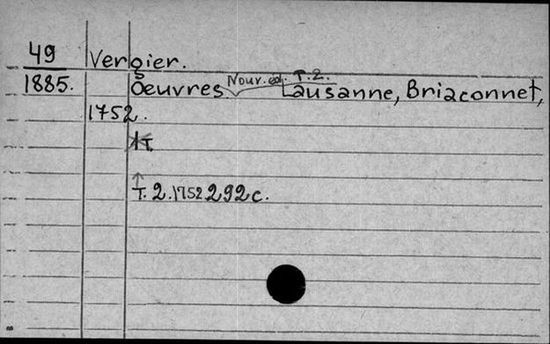 49 Vergier.
1885. Oeuvres Nouv. ed. T. 2. Lausanne, Briaconnet,
1752.
T.
T. 2. 1752 292 c.